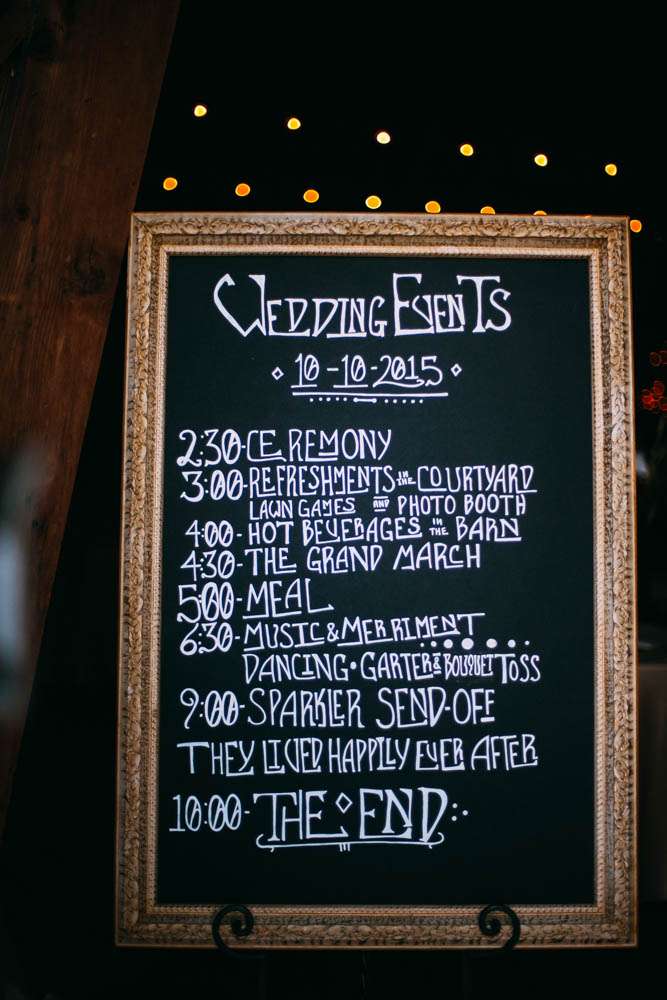 WEDDING EVENTS
10-10-2015
2:30-CEREMONY
3:00-REFRESHMENTS IN THE COURTYARD
LAWN GAMES AND PHOTO BOOTH
4:00-HOT BEVERAGES IN THE BARN
4:30-THE GRAND MARCH
5:00-MEAL
6:30-MUSIC & MERRIMENT
DANCING • GARTER & BOUQUET TOSS
9:00-SPARKLER SEND-OFF
THEY LIVED HAPPILY EVER AFTER
10:00-THE END